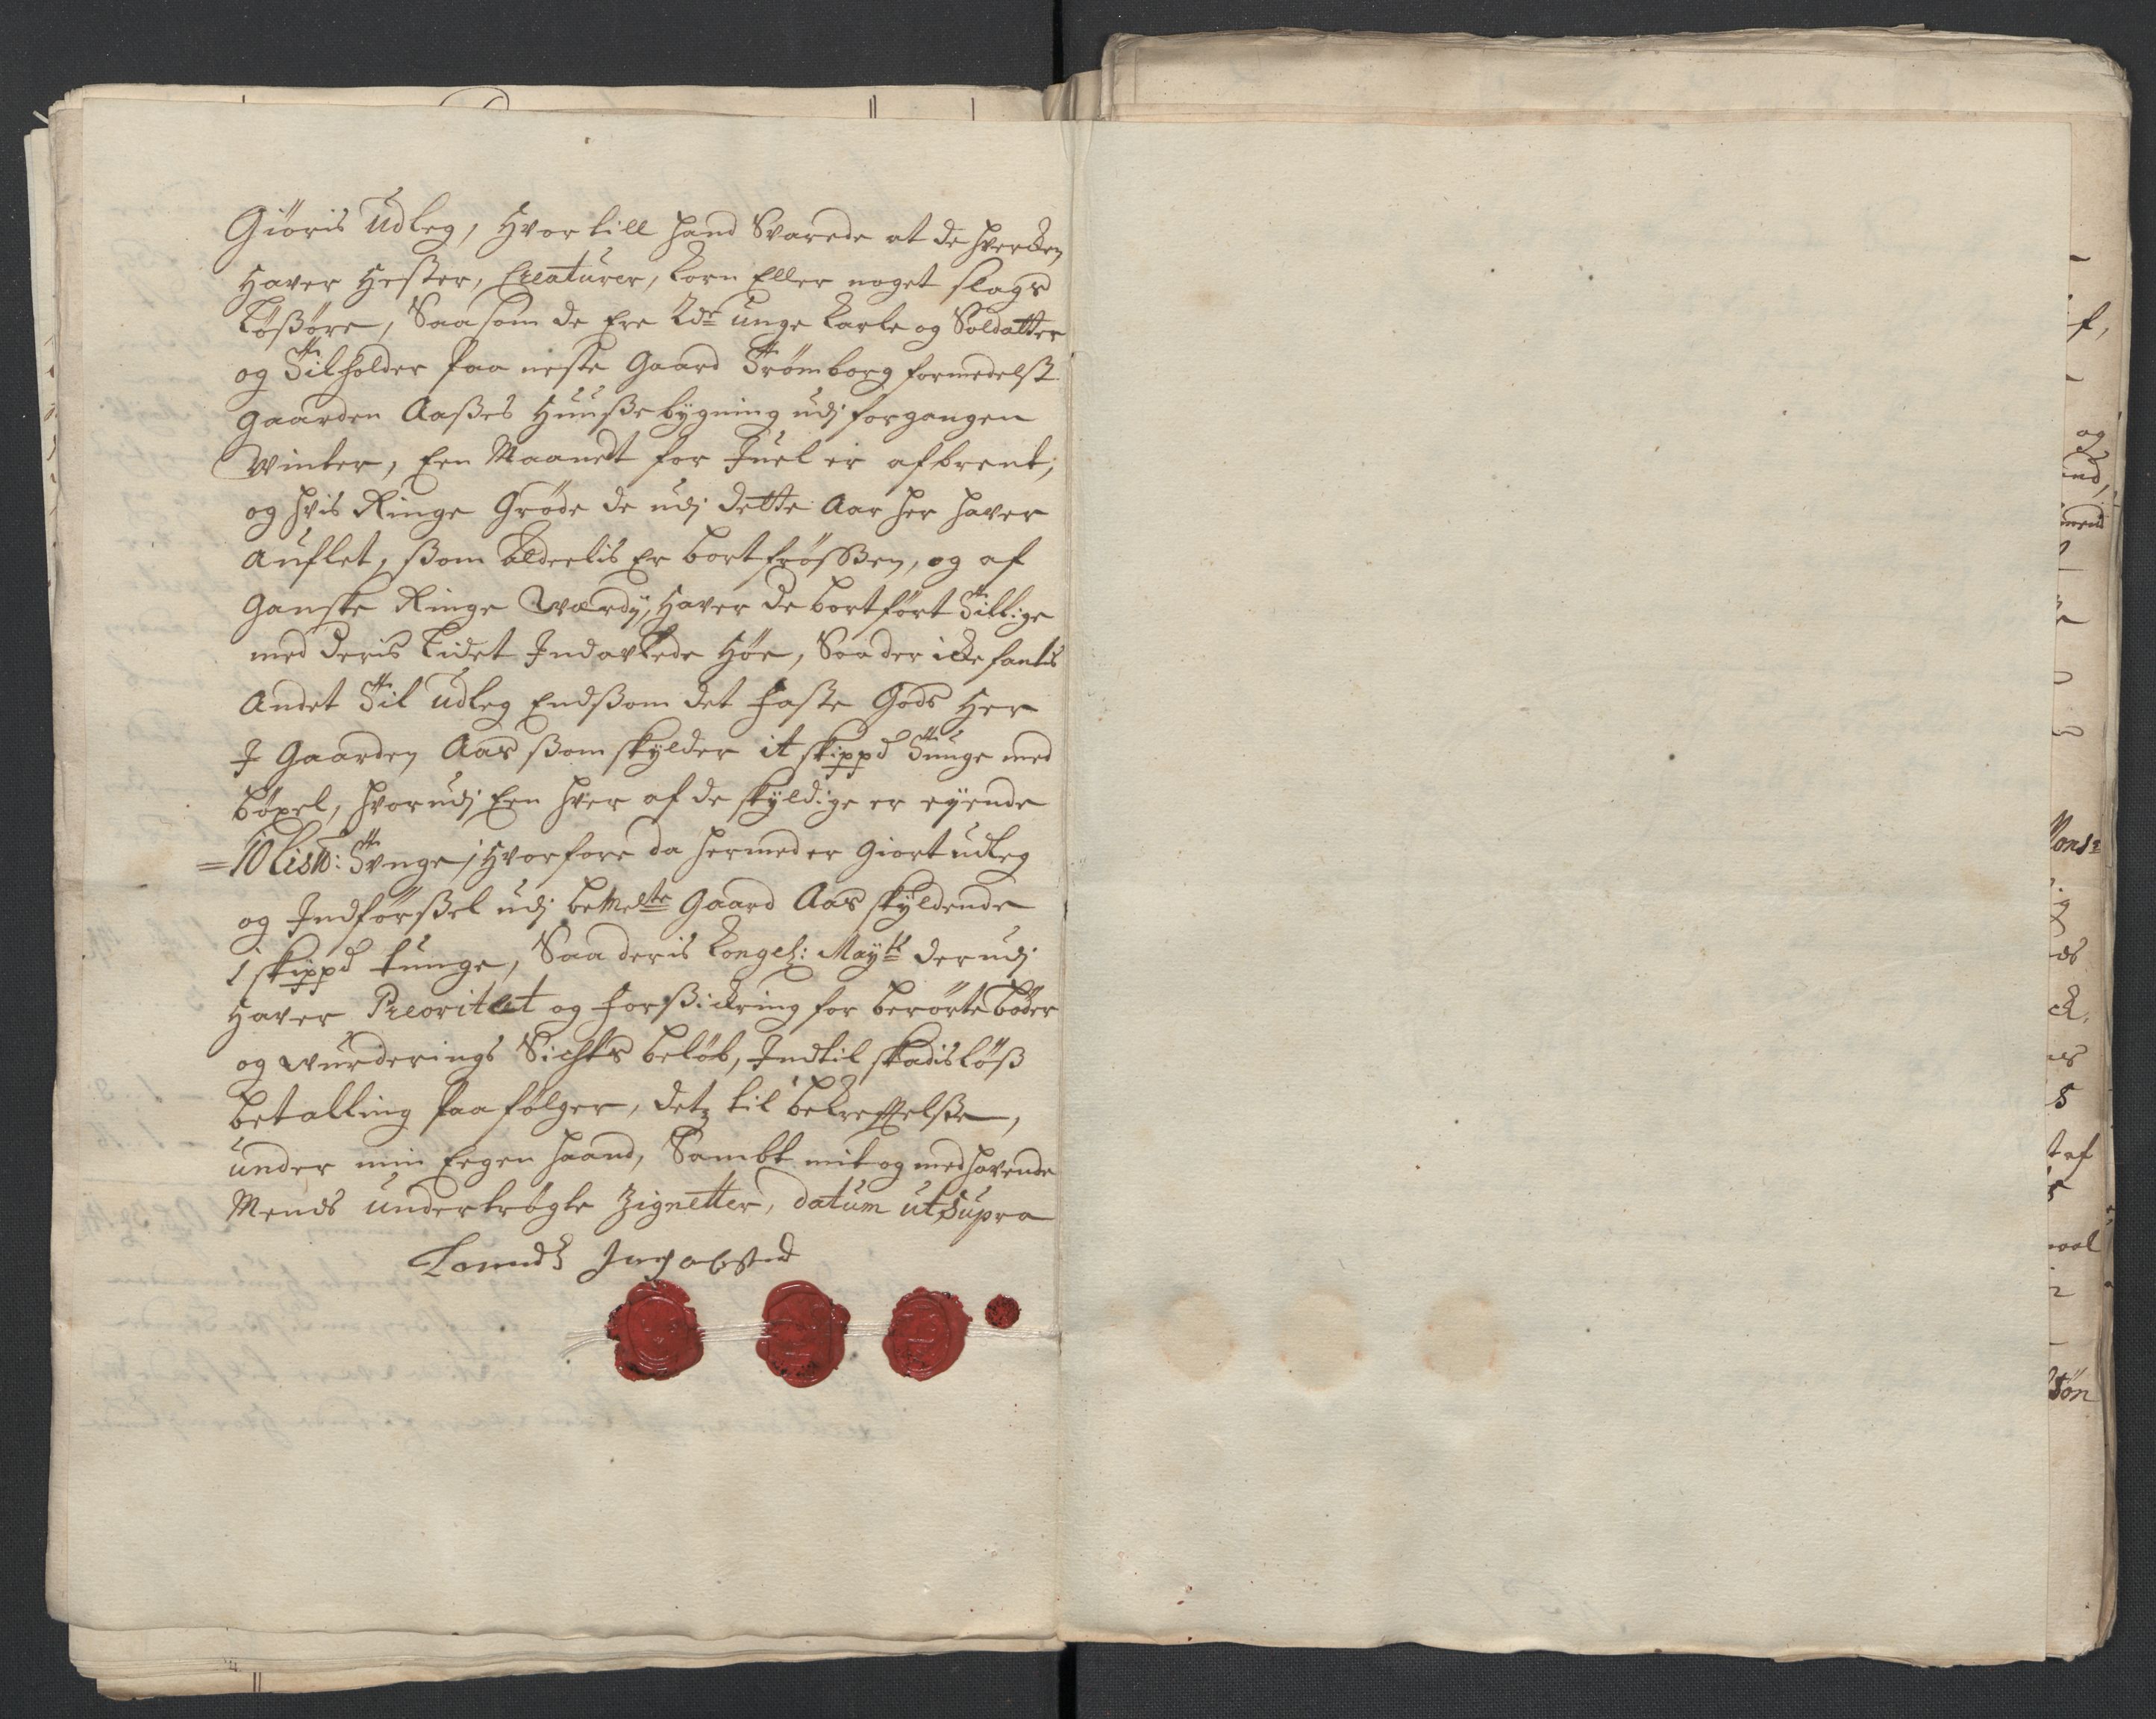 Giöris udleg, Hvor till hand Svarede at de hvercken
Haver Hester, Creaturer, korn Eller noget slags
Lösöre, Saasom de Ere 2de unge karle og Soldatter
og Tilholder paa neste Gaard Strömborg formedelst
gaarden Aases Huusebÿgning udj forgangen
Winter, Een Maanedt for Juel er afbrent,
og hvis Ringe Gröde de udj dette Aar her haver
Auflet, som Aldeelis Er bortfrössen, og af
Ganske Ringe Værdÿ, Haver de bortfört Tillige
med deris Lidet Indavlede Höe, Saa der icke fantis
Andet Til udleg End som det faste Gods Her
J Gaarden Aas som skÿlder it skippd Tunge med
böxel, hvorudj Een hver af de skÿldige er eÿende
=10 Lis℔: Tunge, Hvorfore da hermed er giort udleg
og Indförsel udj bemelte Gaard Aas skÿldende
1 skippd tunge, Saa deris Kongel: Maÿtt derudj
Haver Preoritet og forsickring for berörte böder
og Wurderings Sichts belöb, Indtil skadislös
betalling paafölger, detz til bekreftelse,
under min Eegen haand, Sambt mit og medhavende
Mends undertrögte Zignetter, datum ut Supra

og
ind,
Mons:
ds
ck.
es
t af
aal
Sön